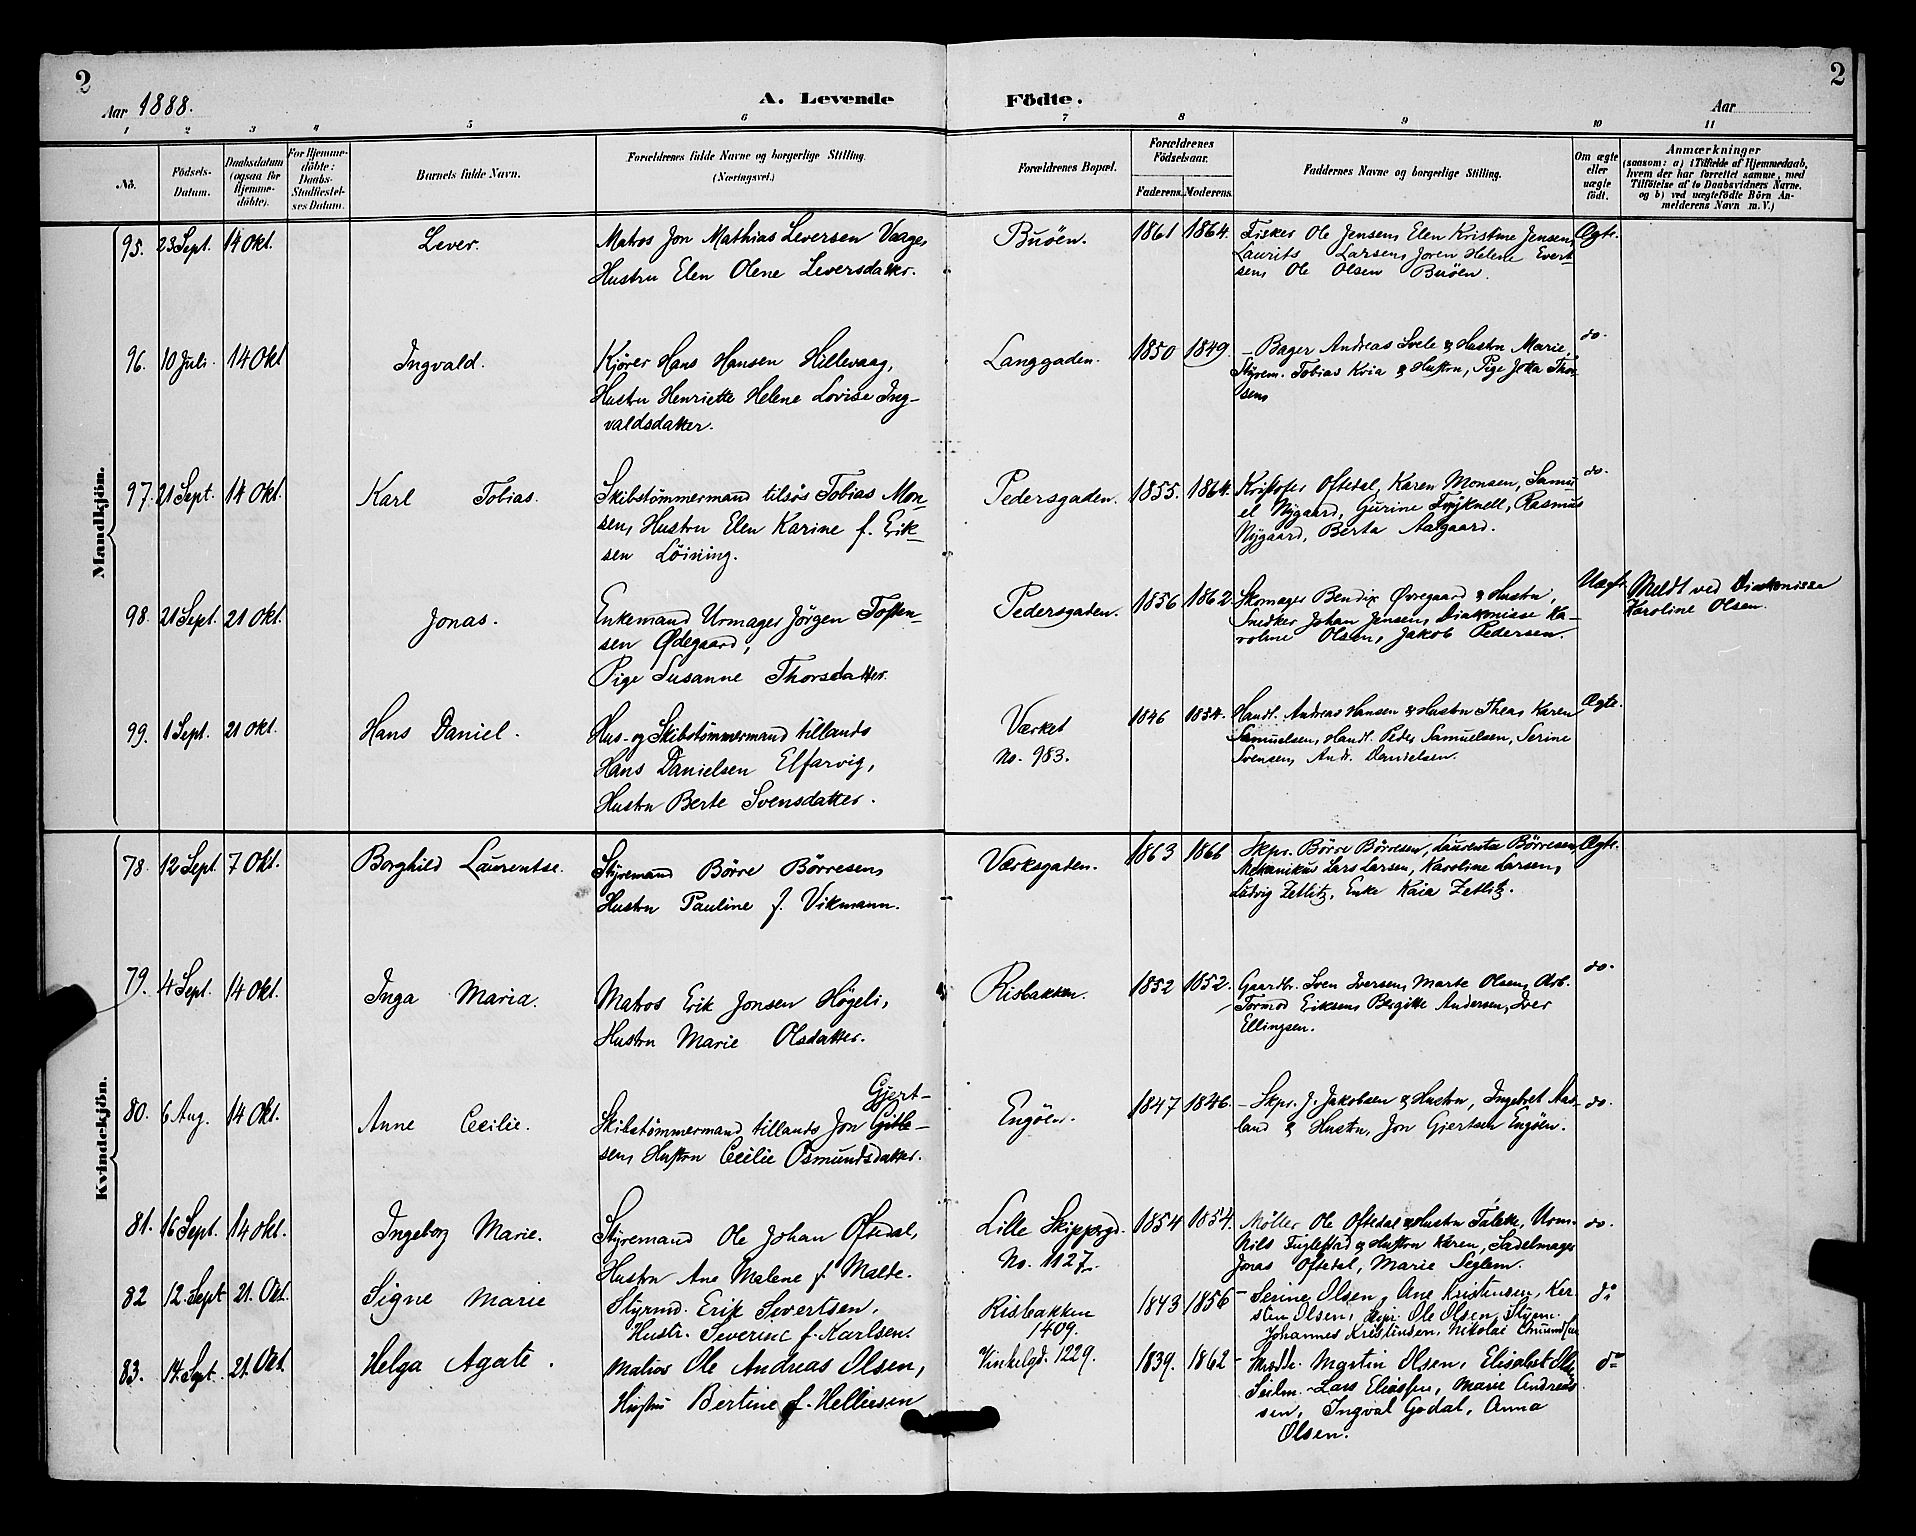 2
Aar 1888.
A. Levende Födte.
Aar
2
1 2 3 4 5 6 7 8 9 10 11
No.
Födsels-Datum.
Daabsdatum (ogsaa for Hjemme-döbte).
For Hjemme-döbte: Daabs-Stadfæstel-ses Datum.
Barnets fulde Navn.
Forældrenes fulde Navne og borgerlige Stilling.
(Næringsvei.)
Forældrenes Bopæl.
Forældrenes Födselsaar.
Faderens. Moderens.
Faddernes Navne og borgerlige Stilling.
Om ægte eller uægte födt.
Anmærkninger
(saasom: a) i Tilfælde af Hjemmedaab,
hvem der har forrettet samme, med
Tilföielse af to Daabsvidners Navne.
og b) ved uægtefödte Börn An-
melderens Navn m. V.)
Mandkjön.
95. 23 Sept. 14 Okt. Lever.
Matros Jon Mathias Leversen Vaage,
Hustru Elen Olene Leversdatter.
Buöen. 1861 1864.
Fisker Ole Jensen, Elen Kristine Jensen,
Laurits Larsen, Joren Helene Evert-
sen, Ole Olsen Buöen.
Ægte.
96. 10 Juli. 14 Okt Ingvald.
Kjörer Hans Hansen Hillevaag,
Hustru Henriette Helene Lovise Ing-
valdsdatter.
Langgaden. 1850 1849.
- Bager Andreas Svele & Hustru Marie,
Styrm. Tobias Kvia & Hustru, Pige Joka Thor-
sen,
do.
97. 21 Sept. 14 Okt. Karl Tobias.
Skibstømmermand tilsös Tobias Mon-
sen, Hustru Elen Karine f. Erik-
sen Löining.
Pedersgaden. 1855. 1864.
Kristofer Oftedal, Karen Monsen, Samu-
el Nygaard, Gurine Tryknell, Rasmus
Nygaard, Berta Aalgaard.
do.
98. 21 Sept. 21 Okt. Jonas.
Enkemand Urmager Jörgen Tosten-
sen Ødegaard,
Pige Susanne Thorsdatter.
Pedersgaden. 1856 1862
Skomager Bendix Øvregaard & Hustru,
Snedker Johan Jensen, Diakonisse Ka-
roline Olsen, Jakob Pedersen.
Uægt.
Meldt ved Diakonisse
Karoline Olsen.
99. 1 Sept. 21 Okt. Hans Daniel.
Hus- og Skibstømmermand tillands
Hans Danielsen Elfarvig,
Hustru Berte Svensdatter.
Værket
No. 983.
1846 1854.
Handl. Andreas Hansen & Hustru Thea, Karen
Samuelsen, Handl. Peder Samuelsen, Serine
Svensen, Andr. Danielsen.
Ægte.
Kvindekjön.
78. 12 Sept. 7 Okt. Borghild Laurentse.
Styremand Börre Börresen,
Hustru Pauline f. Vikmann.
Værksgaden. 1863 1866
Skpr. Börre Börresen, Laurentse Börresen,
Mekanikus Lars Larsen, Karoline Larsen,
Ludvig Zetlitz, Enke Kaia Zetlitz.
Ægte.
79. 4 Sept. 14 Okt. Inga Maria.
Matros Erik Jonsen Högeli,
Hustru Marie Olsdatter.
Risbakken. 1852 1852.
Gaardbr. Sven Iversen, Marte Olsen, Arb.
Tormod Eriksen, Bergitte Andersen, Iver
Ellingsen.
do.
80. 6 Aug. 14 Okt. Anne Cecilie.
Gjert-
Skibstømmermand tillands Jon
sen, Hustru Cecilie Osmundsdatter.
Engöen. 1847 1846.
- Skpr. J. Jakobsen & Hustru, Ingebret Aas-
land & Hustru, Jon Gjertsen Engöen.
do.
81. 16 Sept. 14 Okt. Ingeborg Marie.
Styremand Ole Johan Oftedal,
Hustru Ane Malene f. Malde.
Lille Skippergd.
No. 1127.
1854 1854.
Möller Ole Oftedal & Hustru Tálette, Urm.
Nils Fuglestad & Hustru Karen, Sadelmager
Jonas Oftedal, Marie Seglem.
do.
82 12. Sept 21. Okt. Signe Marie
Styrmd. Erik Sivertsen,
Hustr. Severine f. Karlsen.
Risbakken
1409.
1843 1856
- Serine Olsen, Ane Kristensen, Ker-
stin Olsen, Skpr. Ole Olsen, Styrm.
Johannes Kristensen, Nikolai
do
83. 14. Sept 21. Okt. Helga Agate.
Matros Ole Andreas Olsen,
Hustru Bertine f. Helliesen
Vinkelgd. 1229. 1839. 1862
- Martin Olsen, Elisabet
Seilm. Lars Eliassen, Marie Andreas-
sen, Ingval Godal, Anna
Olsen.
do